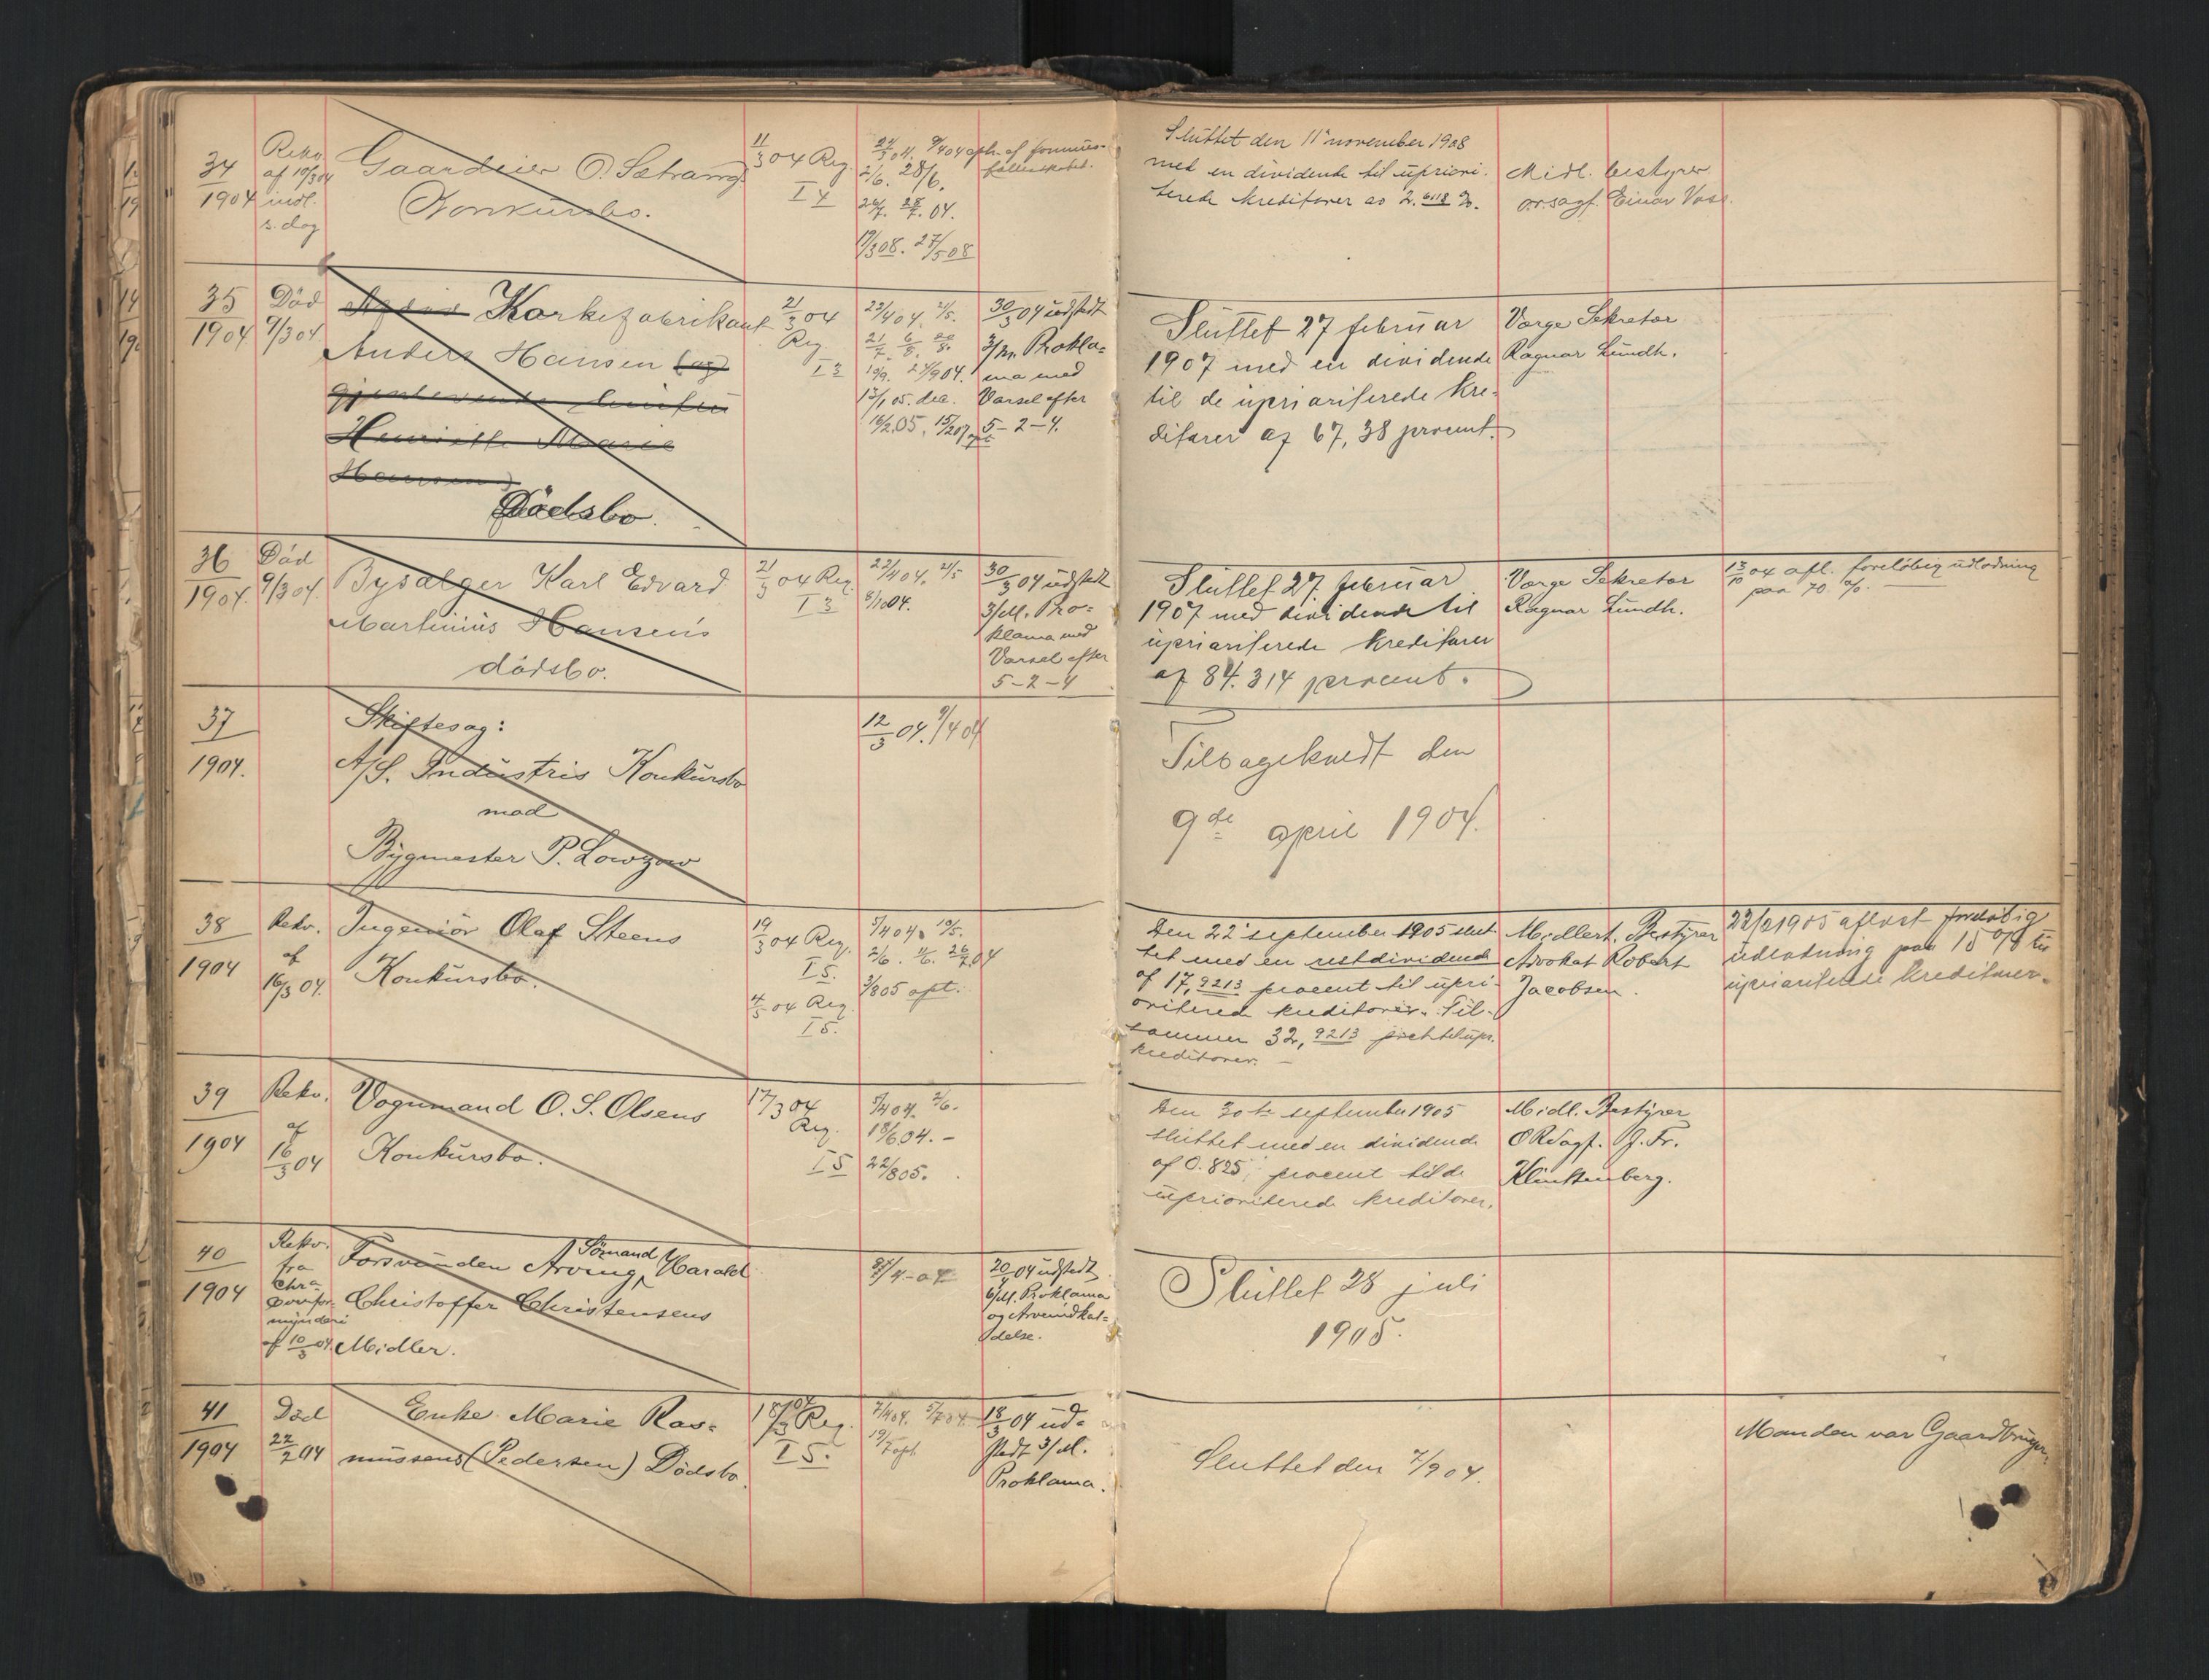 34
1904
Rekv.
af 10/3 04
indl.
s. dag
Gaardeier O. Sætrangs
Konkursbo.
11/3 04 Reg.
24/3 04. 9/4 04 oph. af formues-
fællesskabet.
2/6. 28/6.
19/3 08. 27/5 08
Sluttet den 11' november 1908
med en dividende til upriori-
terede kreditorer
Midl. bestyrer
o.r.sagf. Einar Voss.
35
1904
Död
9/3 04
Korkefabrikant
Anders Hansen (og
gjenlevende hustru
Henriette Marie
Hansen)
Dödsbo.
21/3 04
Reg.
I 3
23/4 04. 2/5.
13/1 05. dec.
30/3 04 udstedt
3/m. Prokla=
ma med
Varsel efter
5-2-4.
Sluttet 27 februar
1907 med en dividende
til de uprioriterede kre-
ditorer af 67,38 procent.
Værge Sekretær
Ragnar Lundh.
36
1904.
Död
9/3 04.
Bysælger Karl Edvard
Martinius Hansens
dödsbo.
21/3 04 Reg.
I 3
23/4 04. 2/5
8/10 04.
30/3 04 udstedt
3/M. Pro=
klama med
Varsel efter
5-2-4
Sluttet 27 februar
1907 med dividende til
uprioriterede kreditorer
af 84.314 procent.
Værge Sekretær
Ragnar Lundh.
13/10 04 afl. foreløbig udlodning
paa 70. %.
37
1904.
Skiftesag:
A/S. Industris Konkursbo
mod
Bygmester P. Lowzow
12/3 04. 9/4 04
Tilbagekaldt den
9de april 1904.
38
1904
Rekv.
af
16/3 04.
Ingeniör Olaf Steens
Konkursbo.
19/3 04 Reg.
I 5.
4/5 04 Reg.
I 5.
5/4 04. 10/5.
Den 22' september 1905 slut-
tet med en restdividende
af 17,9213 procent til upri-
oriterede kreditorer. Til-
sammen 32,9213 prct til upr.
kreditorer. -
Midlert. Bestyrer
Advokat Robert
Jacobsen.
foreløbig
udlodning paa 15 % til
uprioriterede kreditorer.
39
1904
Rekv.
af
16/3 04
Vognmand O. S. Olsens
Konkursbo.
17/3 04
Reg.
I 5
5/4 04. 2/6.
18/6 04. -
22/8 05.
Den 30te september 1905
sluttet med en dividende
af 0.825, procent til de
uprioriterede kreditorer.
Midl. Bestyrer
ORsagf. J. Fr.
Klinkenberg.
40
1904
Rekv.
fra
Chra
overfor-
mynderi
af 10/3 04
Forsvunden Arving, Sömand Harald
Christoffer Christensens
Midler.
04 udstedt
6/M. Proklama
og Arveindkal=
delse.
Sluttet 28 juli
1905.
41
1904
Död
22/2 04
Enke Marie Ras=
mussens (Pedersen) Dödsbo.
18/3 04 Reg.
I 5.
18/3 04 ud=
stedt 3/M.
Proklama.
Sluttet den 7/9 04.
Manden var Gaardbruger.